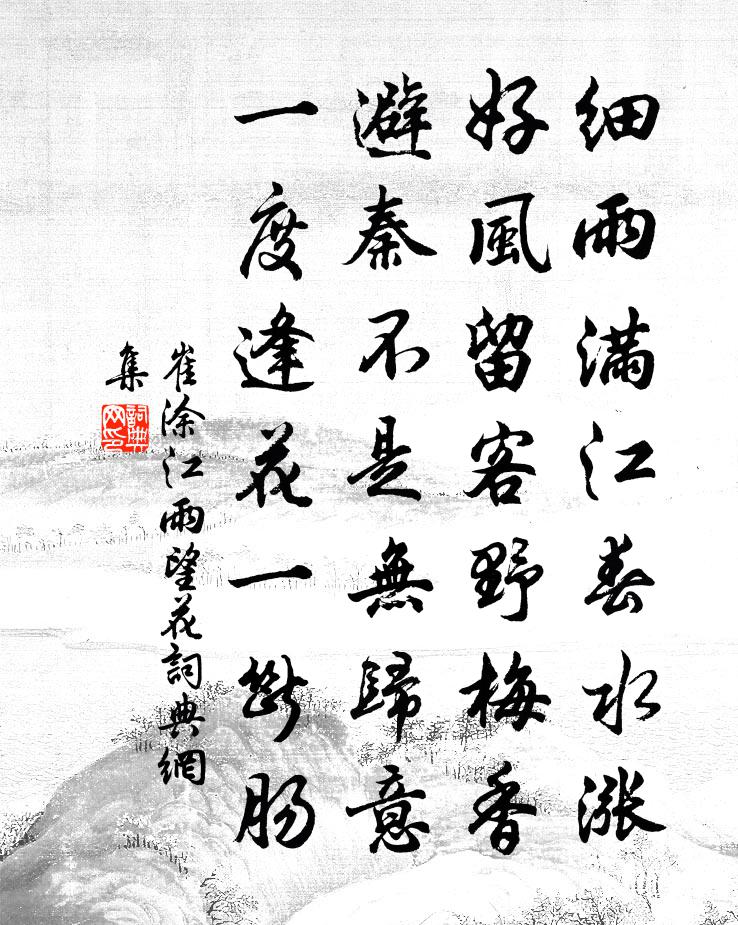 細雨滿江春水漲
好風留客野梅香
避秦不是無歸意
一度逢花一斷腸
崔涂江雨望花詞典網
集
詞典
网印